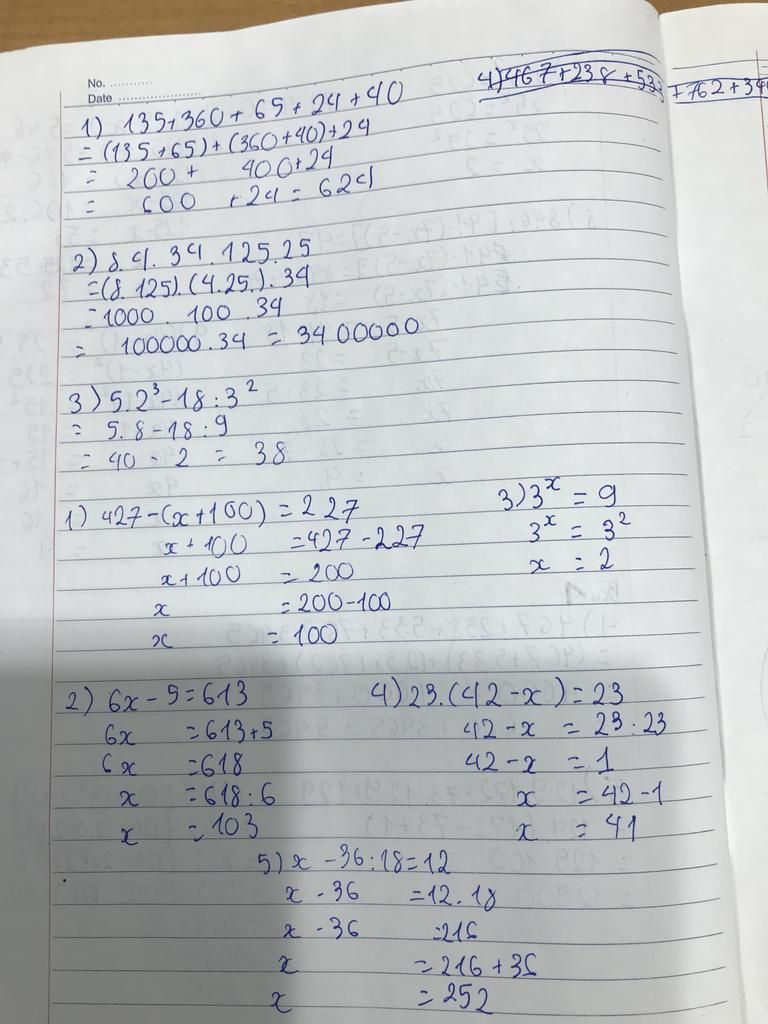 No. ...........
Date .....................
4) 467+238+533+762+346
1) 135+360+65+24+40
= (135+65)+(360+40)+24
= 200 + 400+24
= 600 +24 = 624
2) 8.4.34.125.25
=(8.125).(4.25.).34
=1000.100.34
= 100000.34 = 3400000
3) 5.2³-18:3²
= 5.8-18:9
= 40 - 2 = 38
1) 427-(x+100) = 227
x+100 =427-227
x+100 =200
x =200-100
x =100
3) 3ˣ = 9
3ˣ = 3²
x = 2
2) 6x-5=613
6x =613+5
6x =618
x =618:6
x =103
4) 23.(42-x) = 23
42-x = 23:23
42-x = 1
x = 42-1
x = 41
5) x -36:18=12
x - 36 =12.18
x - 36 =216
x =216+36
x =252